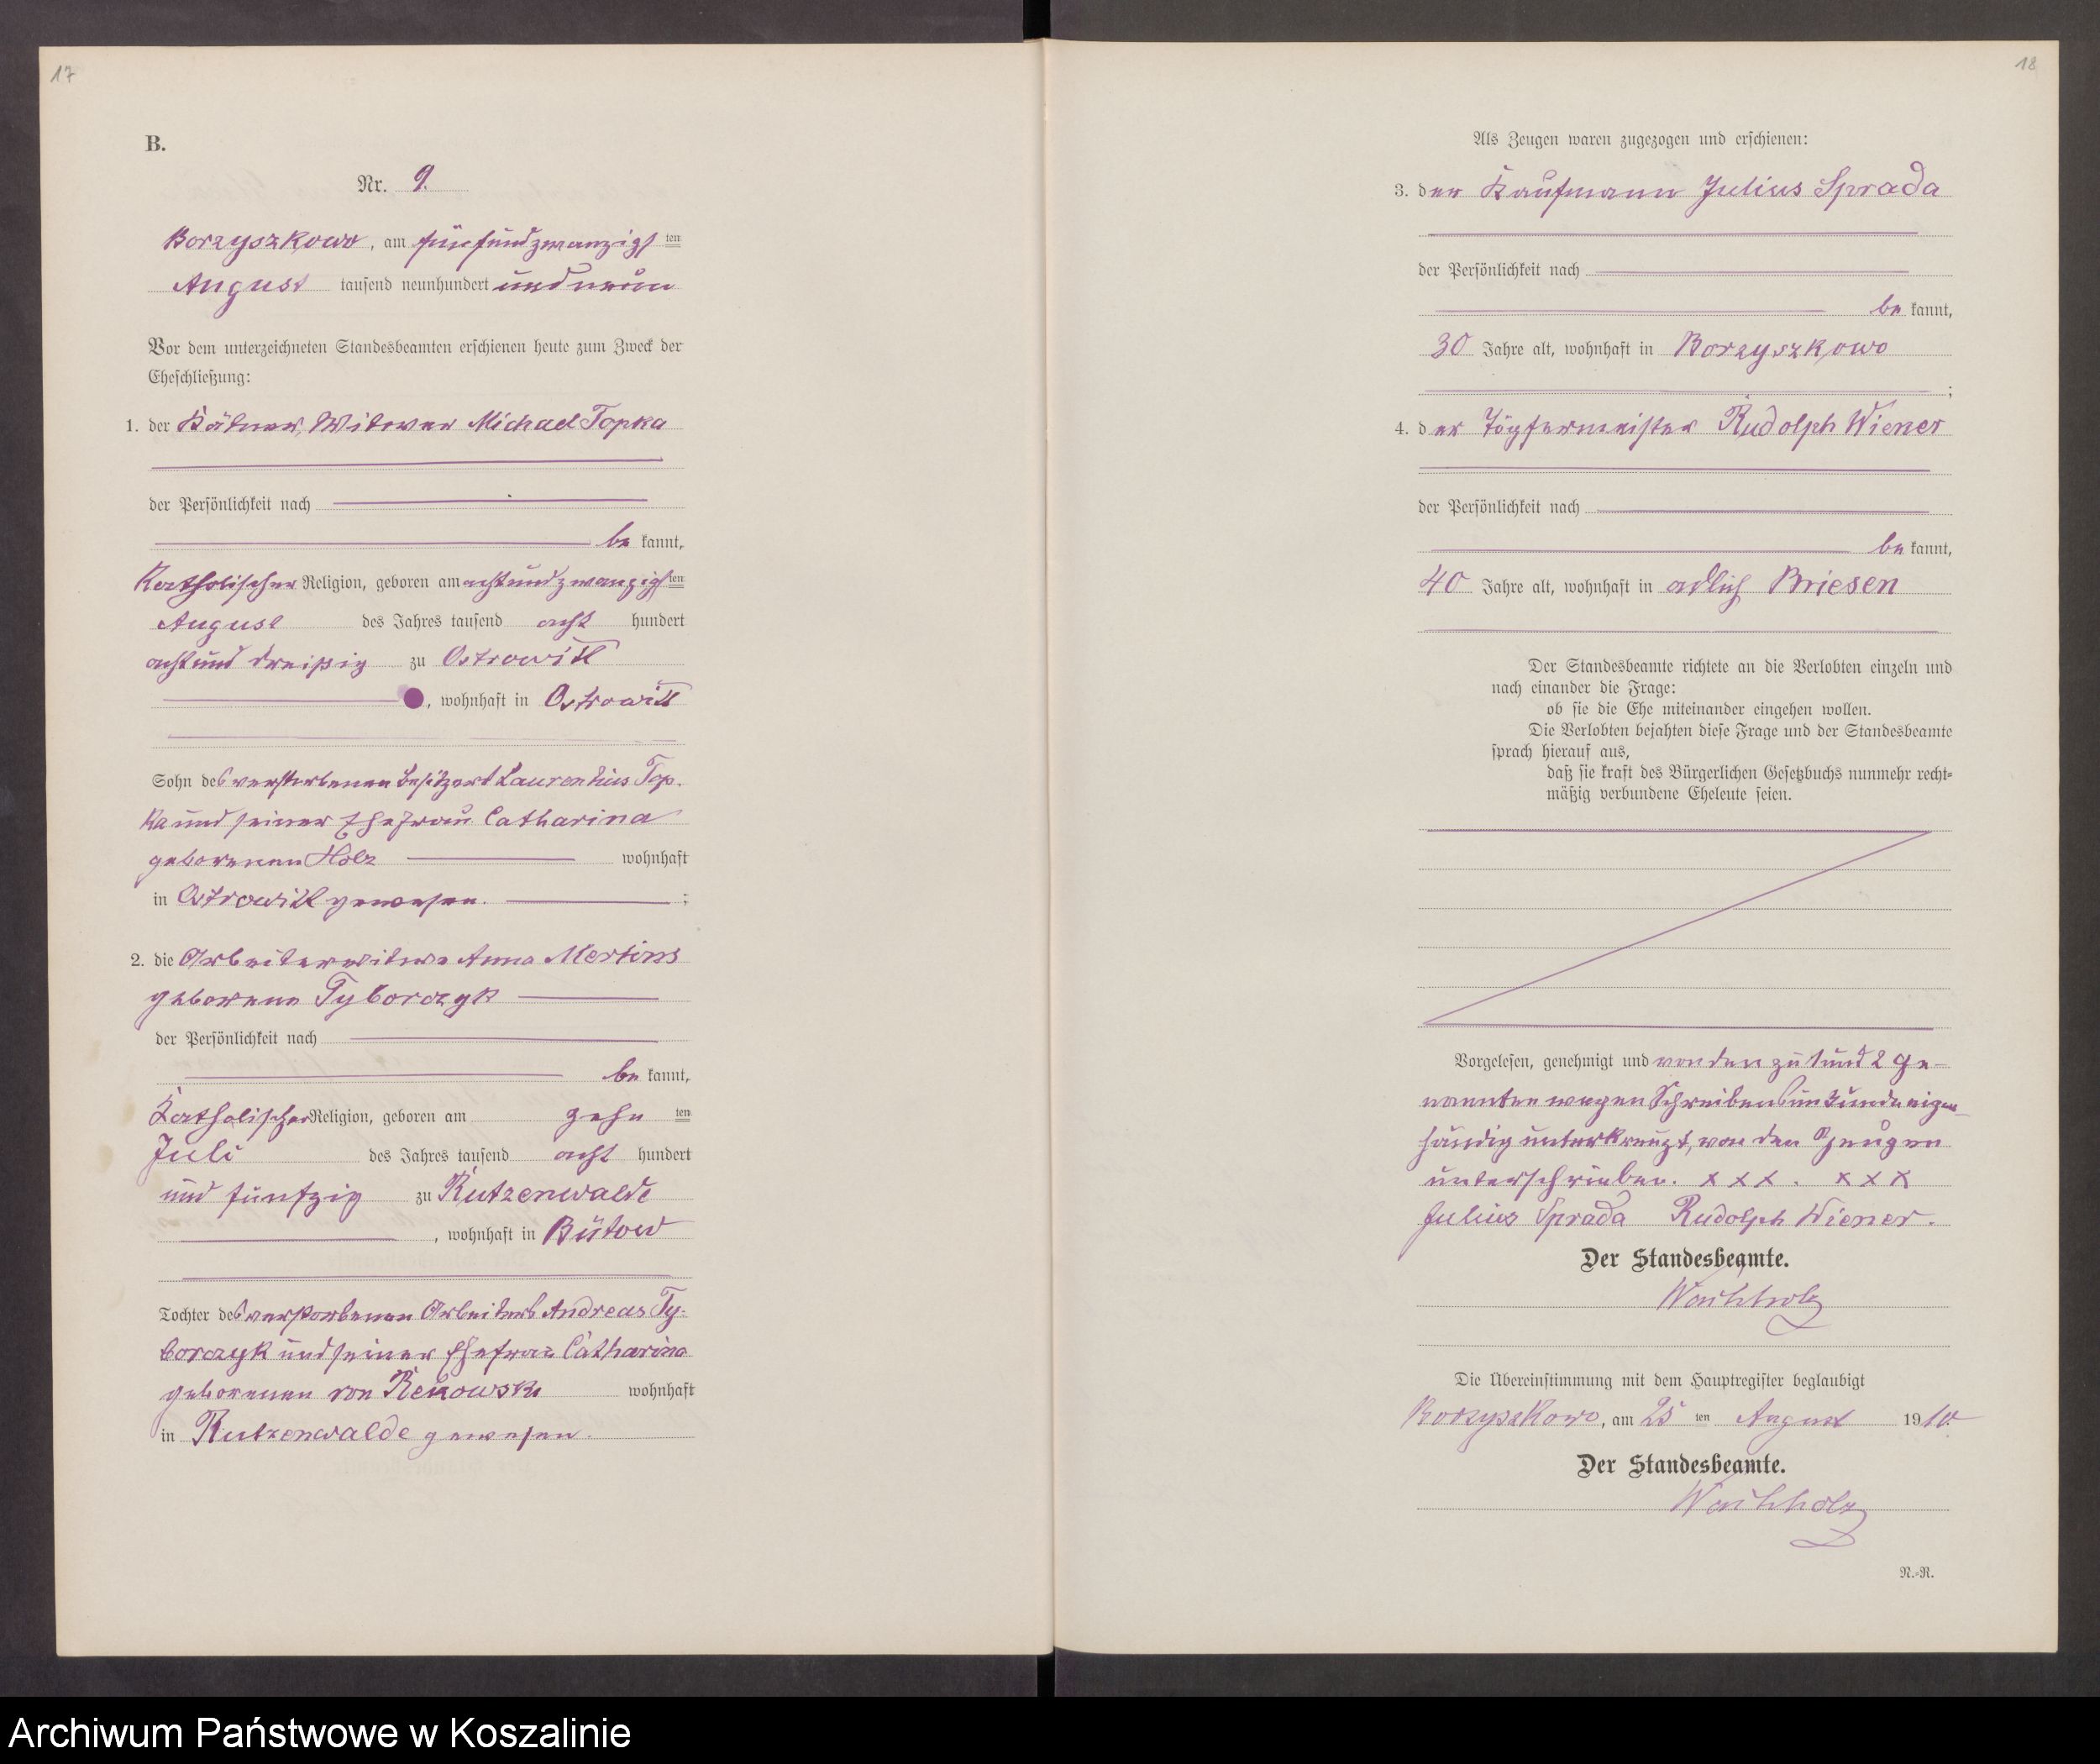 17
B.
Nr. 9.
Borzyszkowo, am fünfundzwanzigsten
August tausend neunhundert und neun
Vor dem unterzeichneten Standesbeamten erschienen heute zum Zweck der
Eheschließung:
1. der Kätner, Witwer Michael Topka
der Persönlichkeit nach
bekannt,
Katholischer Religion, geboren am achtundzwanzigsten
August des Jahres tausend acht hundert
achtund dreißig zu Ostrowitt
, wohnhaft in Ostrowitt
Sohn des verstorbenen Besitzers Laurentius Top-
ka und seiner Ehefrau Catharina
geborenen Holz wohnhaft
in Ostrowitt gewesen. ;
2. die Arbeiterwitwe Anna Mertins
geborene Tyborczyk
der Persönlichkeit nach
bekannt,
Katholischer Religion, geboren am zehnten
Juli des Jahres tausend acht hundert
und fünfzig zu Rutzenwalde
, wohnhaft in Bütow
Tochter des verstorbenen Arbeiters Andreas Ty-
borczyk und seiner Ehefrau Catharina
geborenen von Rekowski wohnhaft
in Rutzenwalde gewesen.
18
Als Zeugen waren zugezogen und erschienen:
3. der Kaufmann Julius Sprada
der Persönlichkeit nach
bekannt,
30 Jahre alt, wohnhaft in Borzyszkowo
;
4. der Töpfermeister Rudolph Wiener
der Persönlichkeit nach
bekannt,
40 Jahre alt, wohnhaft in adlich Briesen
Der Standesbeamte richtete an die Verlobten einzeln und
nach einander die Frage:
ob sie die Ehe miteinander eingehen wollen.
Die Verlobten bejahten diese Frage und der Standesbeamte
sprach hierauf aus,
daß sie kraft des Bürgerlichen Gesetzbuchs nunmehr recht=
mäßig verbundene Eheleute seien.
Vorgelesen, genehmigt und von den zu 1 und 2 ge-
nannten wegen Schreibensunkunde eigen-
händig unterkreuzt, von den Zeugen
unterschrieben. x x x . x x x
Julius Sprada Rudolph Wiener.
Der Standesbeamte.
Wachholz
Die Übereinstimmung mit dem Hauptregister beglaubigt
Borzyszkowo, am 25 ten August 1910.
Der Standesbeamte.
Wachholz
N.=R.
Archiwum Państwowe w Koszalinie